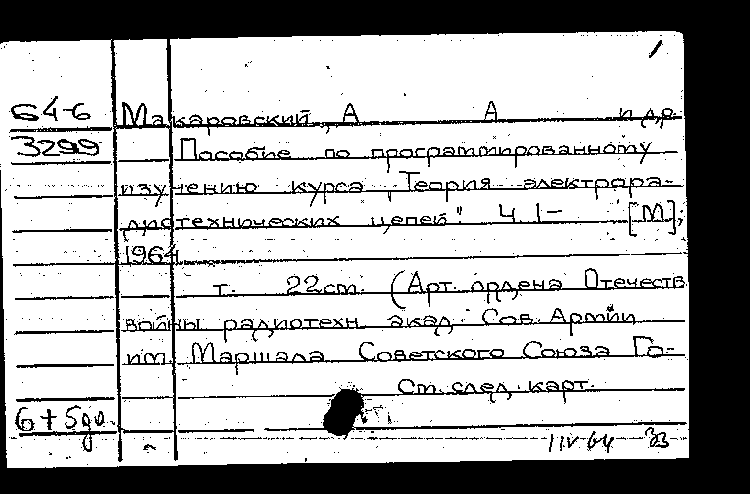 64-6 Макаровский, А А и др.
3299 Пособие по программированному
изучению курса „Теория электрора-
диотехнических цепей". Ч. 1- [М],
1964
т. 22см. (Арт. ордена Отечеств
войны радиотехн. акад. Сов. Армии
им. Маршала Советского Союза Го-
См. след. карт.
6+5до.
11V 64 33